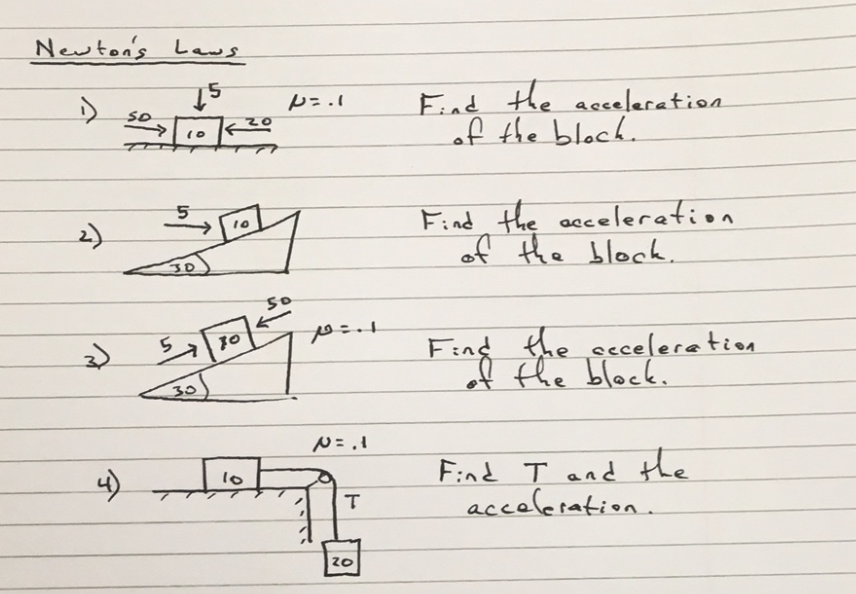 Newton's Laws
1) 50 ↓5 10 20 μ=.1 Find the acceleration
of the block.
2) 5 10 30 Find the acceleration
of the block.
3) 5 50 30 μ=.1 Find the acceleration
of the block.
4) 10 μ=.1 T 20 Find T and the
acceleration.